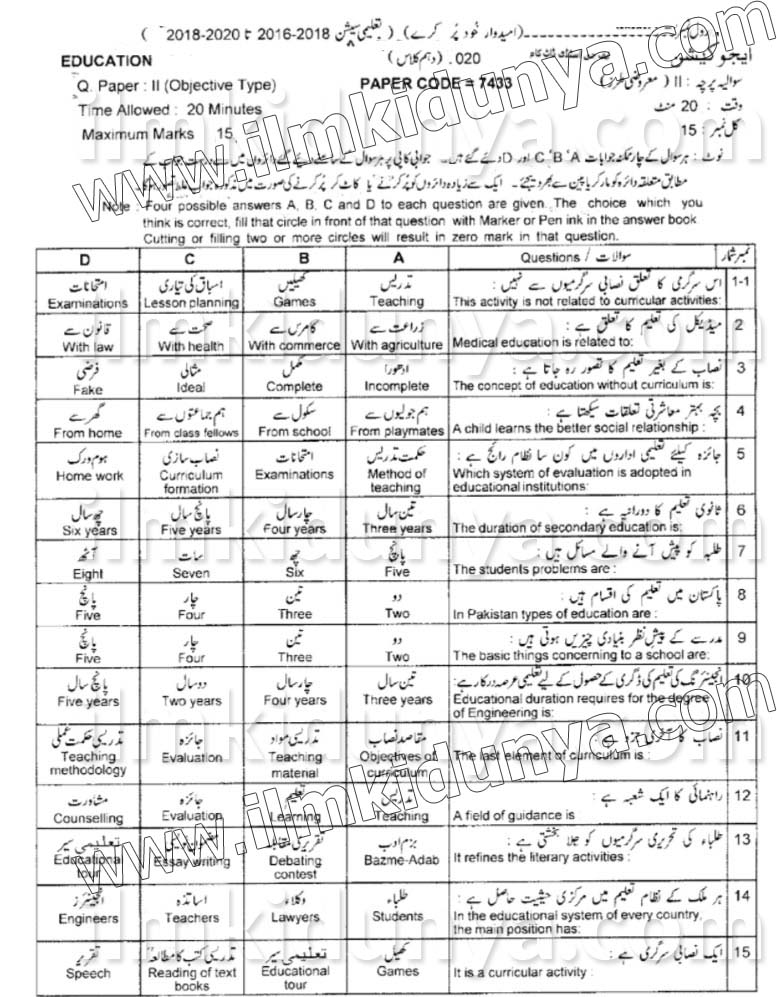 (امیدوار خود پُر کرے) (تعلیمی سیشن 2016-2018 تا 2018-2020)
EDUCATION 020. (دہم کلاس) ایجوکیشن
Q. Paper : II (Objective Type) PAPER CODE = 7433 سوالیہ پرچہ : II
Time Allowed : 20 Minutes وقت : 20 منٹ
Maximum Marks 15 کل نمبر : 15
نوٹ : ہر سوال کے چار ممکنہ جوابات A، B، C اور D دئیے گئے ہیں۔ جوابی کاپی پر ہر سوال کے سامنے دئیے گئے دائروں میں سے
مطابق متعلقہ دائرہ کو مارکر یا پین سے بھر دیجئے۔ ایک سے زیادہ دائروں کو پُر کرنے یا کاٹ کر پُر کرنے کی صورت میں
Note : Four possible answers A, B, C and D to each question are given. The choice which you
think is correct, fill that circle in front of that question with Marker or Pen ink in the answer book.
Cutting or filling two or more circles will result in zero mark in that question.
D C B A Questions / سوالات نمبر شمار
امتحانات اسباق کی تیاری کھیلیں تدریس اس سرگرمی کا تعلق نصابی سرگرمیوں سے نہیں : 1-1
Examinations Lesson planning Games Teaching This activity is not related to curricular activities:
قانون سے صحت سے کامرس سے زراعت سے میڈیکل کی تعلیم کا تعلق ہے : 2
With law With health With commerce With agriculture Medical education is related to:
فرضی مثالی مکمل ادھورا نصاب کے بغیر تعلیم کا تصور رہ جاتا ہے : 3
Fake Ideal Complete Incomplete The concept of education without curriculum is:
گھر سے ہم جماعتوں سے سکول سے ہم جولیوں سے بچہ بہتر معاشرتی تعلقات سیکھتا ہے : 4
From home From class fellows From school From playmates A child learns the better social relationship :
ہوم ورک نصاب سازی امتحانات حکمت تدریس جائزہ کیلئے تعلیمی اداروں میں کون سا نظام رائج ہے : 5
Home work Curriculum formation Examinations Method of teaching Which system of evaluation is adopted in
educational institutions:
چھ سال پانچ سال چار سال تین سال ثانوی تعلیم کا دورانیہ ہے : 6
Six years Five years Four years Three years The duration of secondary education is:
آٹھ سات چھ پانچ طلبہ کو پیش آنے والے مسائل ہیں : 7
Eight Seven Six Five The students problems are :
پانچ چار تین دو پاکستان میں تعلیم کی اقسام ہیں : 8
Five Four Three Two In Pakistan types of education are :
پانچ چار تین دو مدرسے کے پیش نظر بنیادی چیزیں ہوتی ہیں : 9
Five Four Three Two The basic things concerning to a school are:
پانچ سال دو سال چار سال تین سال انجینئرنگ کی تعلیم کی ڈگری کے حصول کے لیے تعلیمی عرصہ درکار ہے : 10
Five years Two years Four years Three years Educational duration requires for the degree
of Engineering is:
تدریسی حکمت عملی جائزہ تدریسی مواد مقاصد نصاب نصاب کا آخری جزو ہے : 11
Teaching methodology Evaluation Teaching material Objectives of curriculum The last element of curriculum is :
مشاورت جائزہ تعلیم تدریس راہنمائی کا ایک شعبہ ہے : 12
Counselling Evaluation Learning Teaching A field of guidance is :
تعلیمی سیر مضمون نویسی تقریری مقابلہ بزم ادب طلباء کی تحریری سرگرمیوں کو جلا بخشتی ہے : 13
Educational tour Essay writing Debating contest Bazme-Adab It refines the literary activities :
انجینئرز اساتذہ وکلاء طلباء ہر ملک کے نظام تعلیم میں مرکزی حیثیت حاصل ہے : 14
Engineers Teachers Lawyers Students In the educational system of every country,
the main position has:
تقریر تدریسی کتب کا مطالعہ تعلیمی سیر کھیل ایک نصابی سرگرمی ہے : 15
Speech Reading of text books Educational tour Games It is a curricular activity :
www.ilmkidunya.com
ilmkidunya.com
ilmkidunya.com
www.ilmkidunya.com
ilmkidunya.com
ilmkidunya.com